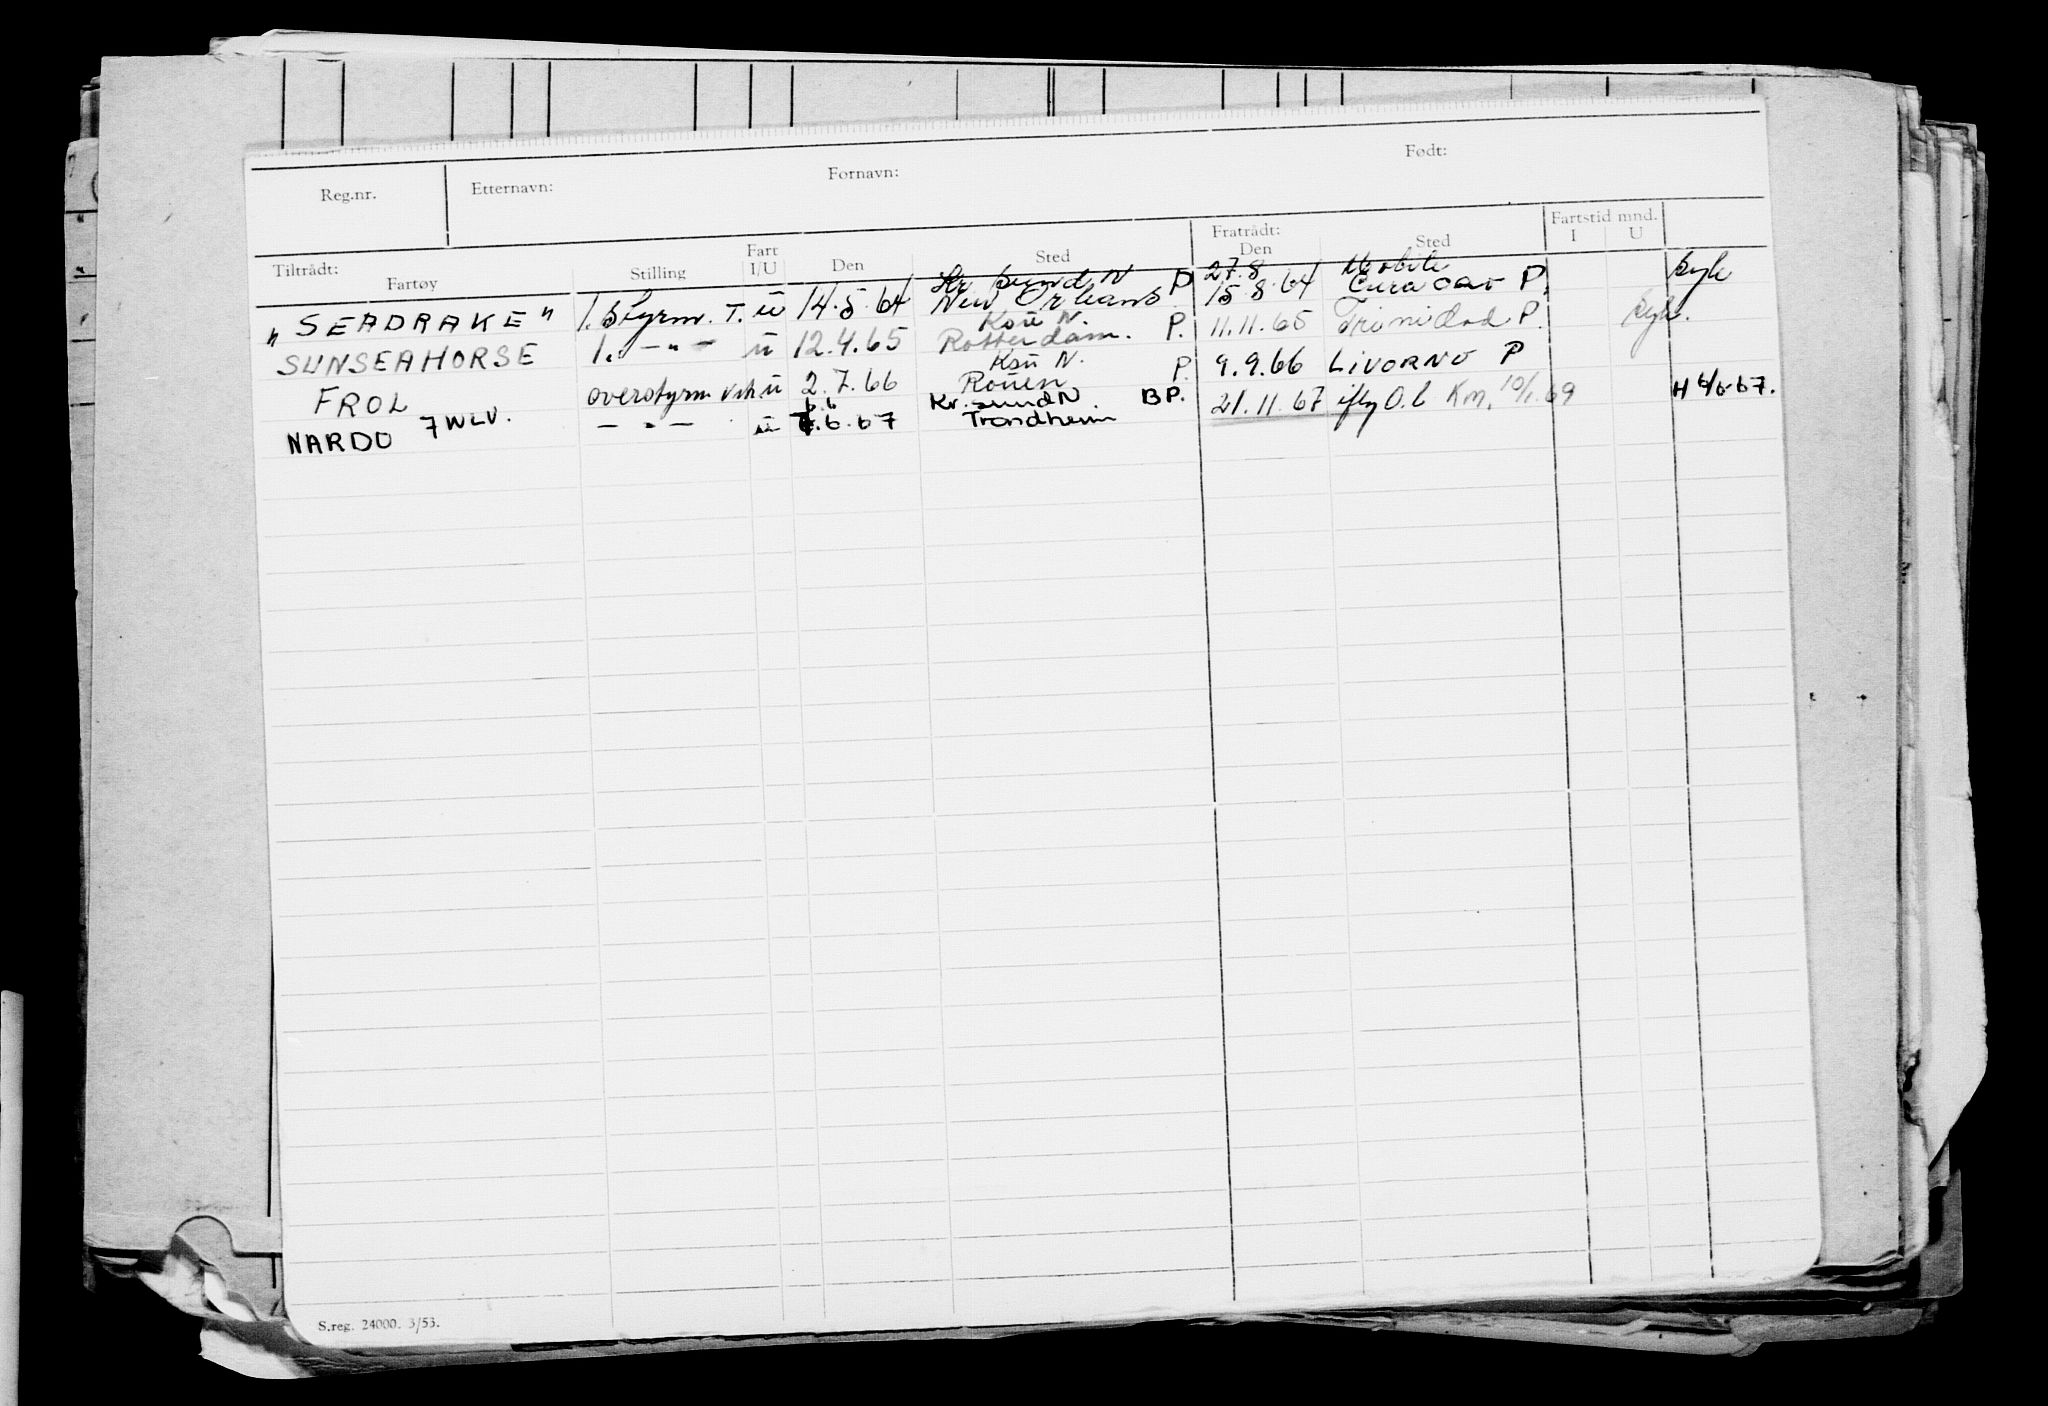 Reg.nr. Etternavn: Fornavn: Født:
Tiltrådt: Fratrådt: Fartstid mnd.
Fartøy Stilling Fart I/U Den Sted Den Sted I U
Kr. sund N 27.8 Mobile
"SEADRAKE" 1. Styrm. T. ü 14.5.64 New Orleans P 15.8.64 Curacao P. syk
Ksü N.
SUNSEAHORSE 1. -"- ü 12.4.65 Rotterdam. P. 11.11.65 Trinidad P. syk.
Ksü N.
FROL overstyrm ü 2.7.66 Rouen P. 9.9.66 LIVORNO P
6.6 Kr. sund N
NARDO 7 WLV. -"- ü 7.6.67 Trondheim BP. 21.11.67 Km. 10/1.69 H 6/6-67.
S.reg. 24000. 3/53.